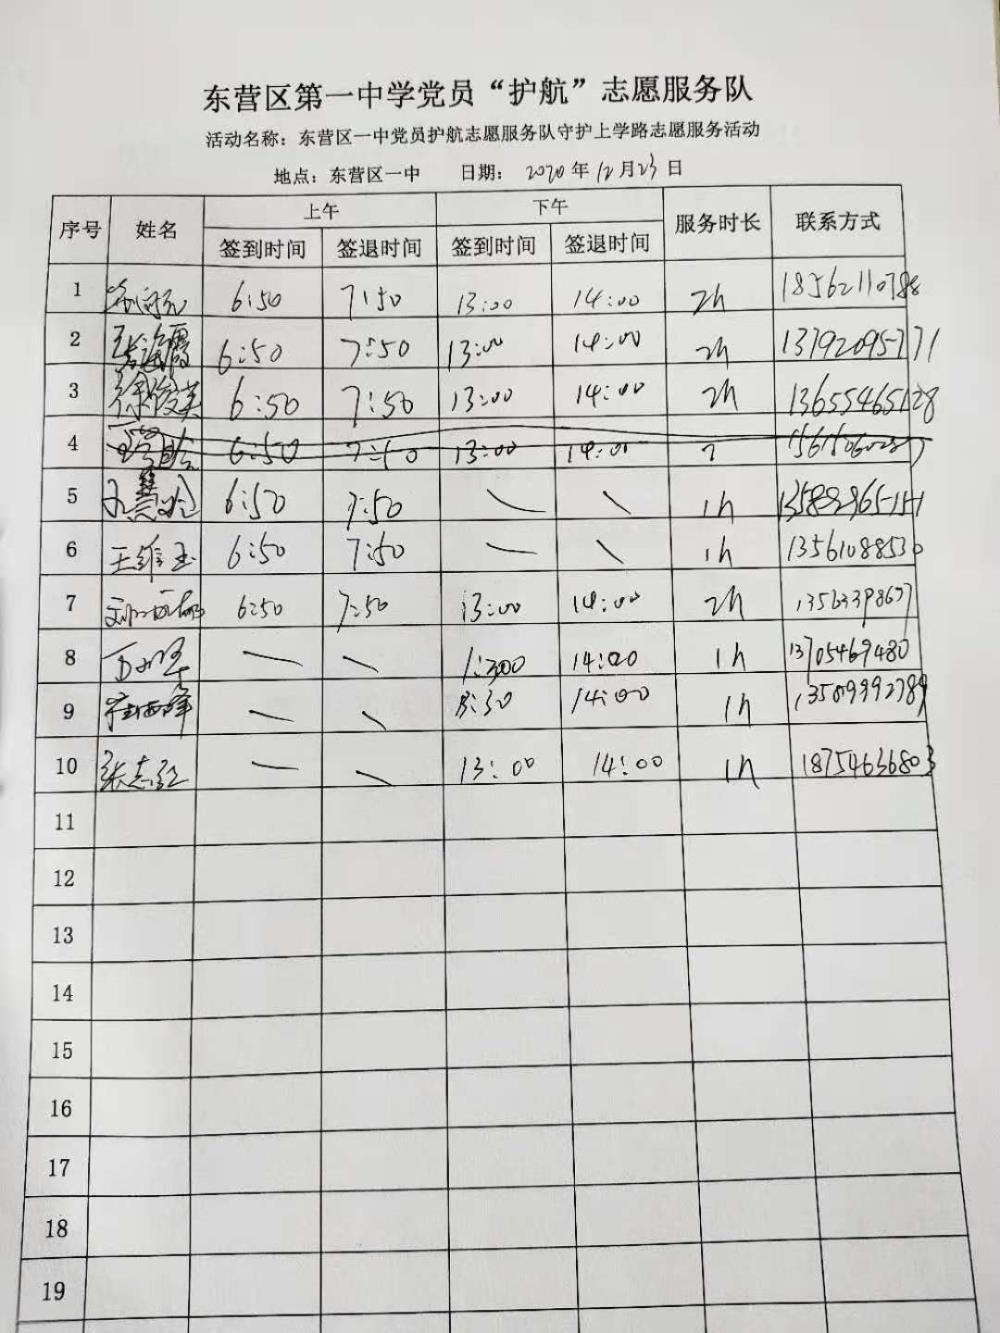 东营区第一中学党员“护航”志愿服务队
活动名称：东营区一中党员护航志愿服务队守护上学路志愿服务活动
地点：东营区一中 日期：2020年12月23日
序号 姓名 上午 下午 服务时长 联系方式
签到时间 签退时间 签到时间 签退时间
1 6:50 7:50 13:00 14:00 2h
2 6:50 7:50 13:00 14:00 2h 13792095771
3 徐俊英 6:50 7:50 13:00 14:00 2h 13655465128
4 6:50 7:50 13:00 14:00
5 6:50 7:50 1h
6 王维玉 6:50 7:50 1h 13561088530
7 6:50 7:50 13:00 14:00 2h
8 14:00 1h 13705469480
9 14:00 1h 13589992789
10 张志红 13:00 14:00 1h 18754636803
11
12
13
14
15
16
17
18
19